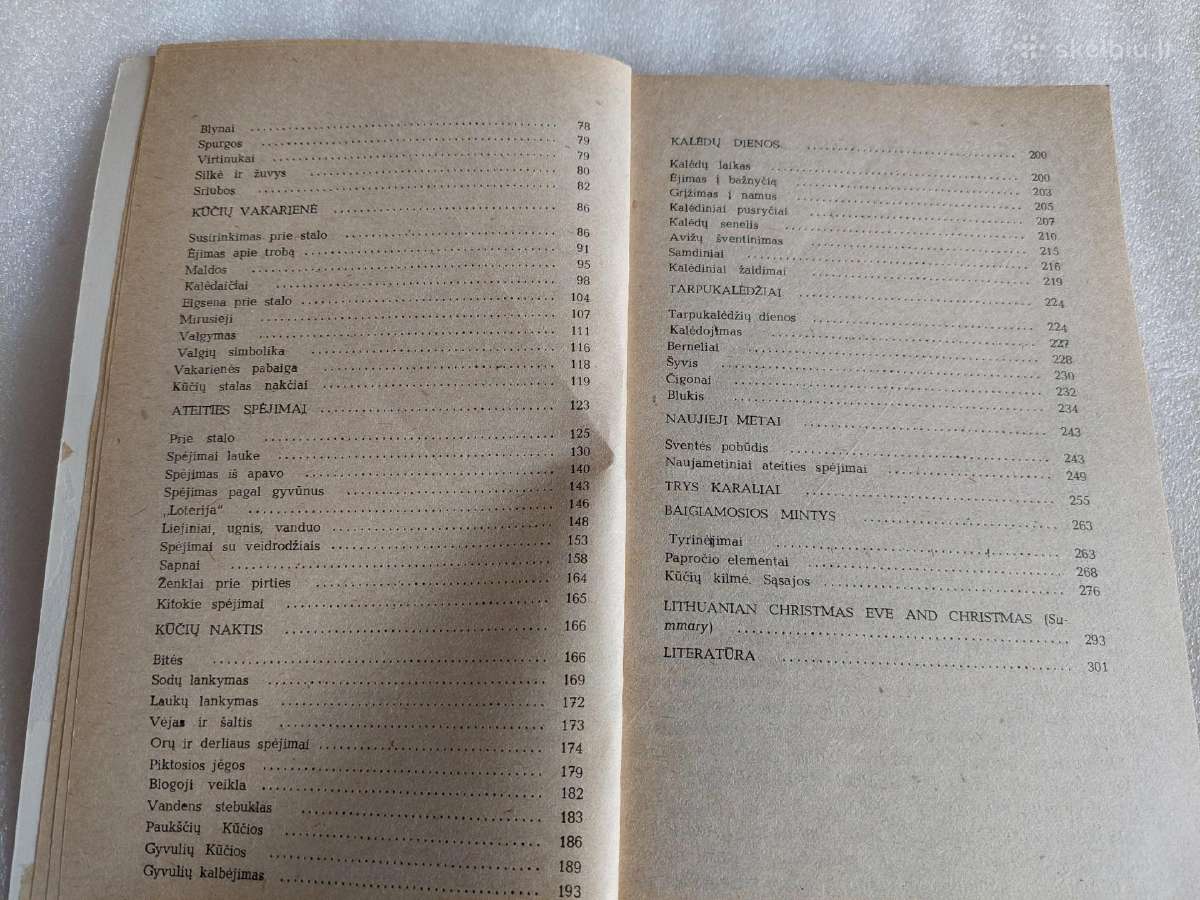 skelbiu.lt
Blynai 78
Spurgos 79
Virtinukai 79
Silkė ir žuvys 80
Sriubos 82
KŪČIŲ VAKARIENĖ 86
Susirinkimas prie stalo 86
Ėjimas apie trobą 91
Maldos 95
Kalėdaičiai 98
Eigsena prie stalo 104
Mirusieji 107
Valgymas 111
Valgių simbolika 116
Vakarienės pabaiga 118
Kūčių stalas nakčiai 119
ATEITIES SPĖJIMAI 123
Prie stalo 125
Spėjimai lauke 130
Spėjimas iš apavo 140
Spėjimas pagal gyvūnus 143
„Loterija“ 146
Liejiniai, ugnis, vanduo 148
Spėjimai su veidrodžiais 153
Sapnai 158
Ženklai prie pirties 164
Kitokie spėjimai 165
KŪČIŲ NAKTIS 166
Bitės 166
Sodų lankymas 169
Laukų lankymas 172
Vėjas ir šaltis 173
Orų ir derliaus spėjimai 174
Piktosios jėgos 179
Blogoji veikla 182
Vandens stebuklas 183
Paukščių Kūčios 186
Gyvulių Kūčios 189
Gyvulių kalbėjimas 193
KALĖDŲ DIENOS 200
Kalėdų laikas 200
Ėjimas į bažnyčią 203
Grįžimas į namus 205
Kalėdiniai pusryčiai 207
Kalėdų senelis 210
Avižų šventinimas 215
Samdiniai 216
Kalėdiniai žaidimai 219
TARPUKALĖDŽIAI 224
Tarpukalėdžių dienos 224
Kalėdojimas 227
Berneliai 228
Šyvis 230
Čigonai 232
Blukis 234
NAUJIEJI METAI 243
Šventės pobūdis 243
Naujametiniai ateities spėjimai 249
TRYS KARALIAI 255
BAIGIAMOSIOS MINTYS 263
Tyrinėjimai 263
Papročio elementai 268
Kūčių kilmė. Sąsajos 276
LITHUANIAN CHRISTMAS EVE AND CHRISTMAS (Su-
mmary) 293
LITERATŪRA 301